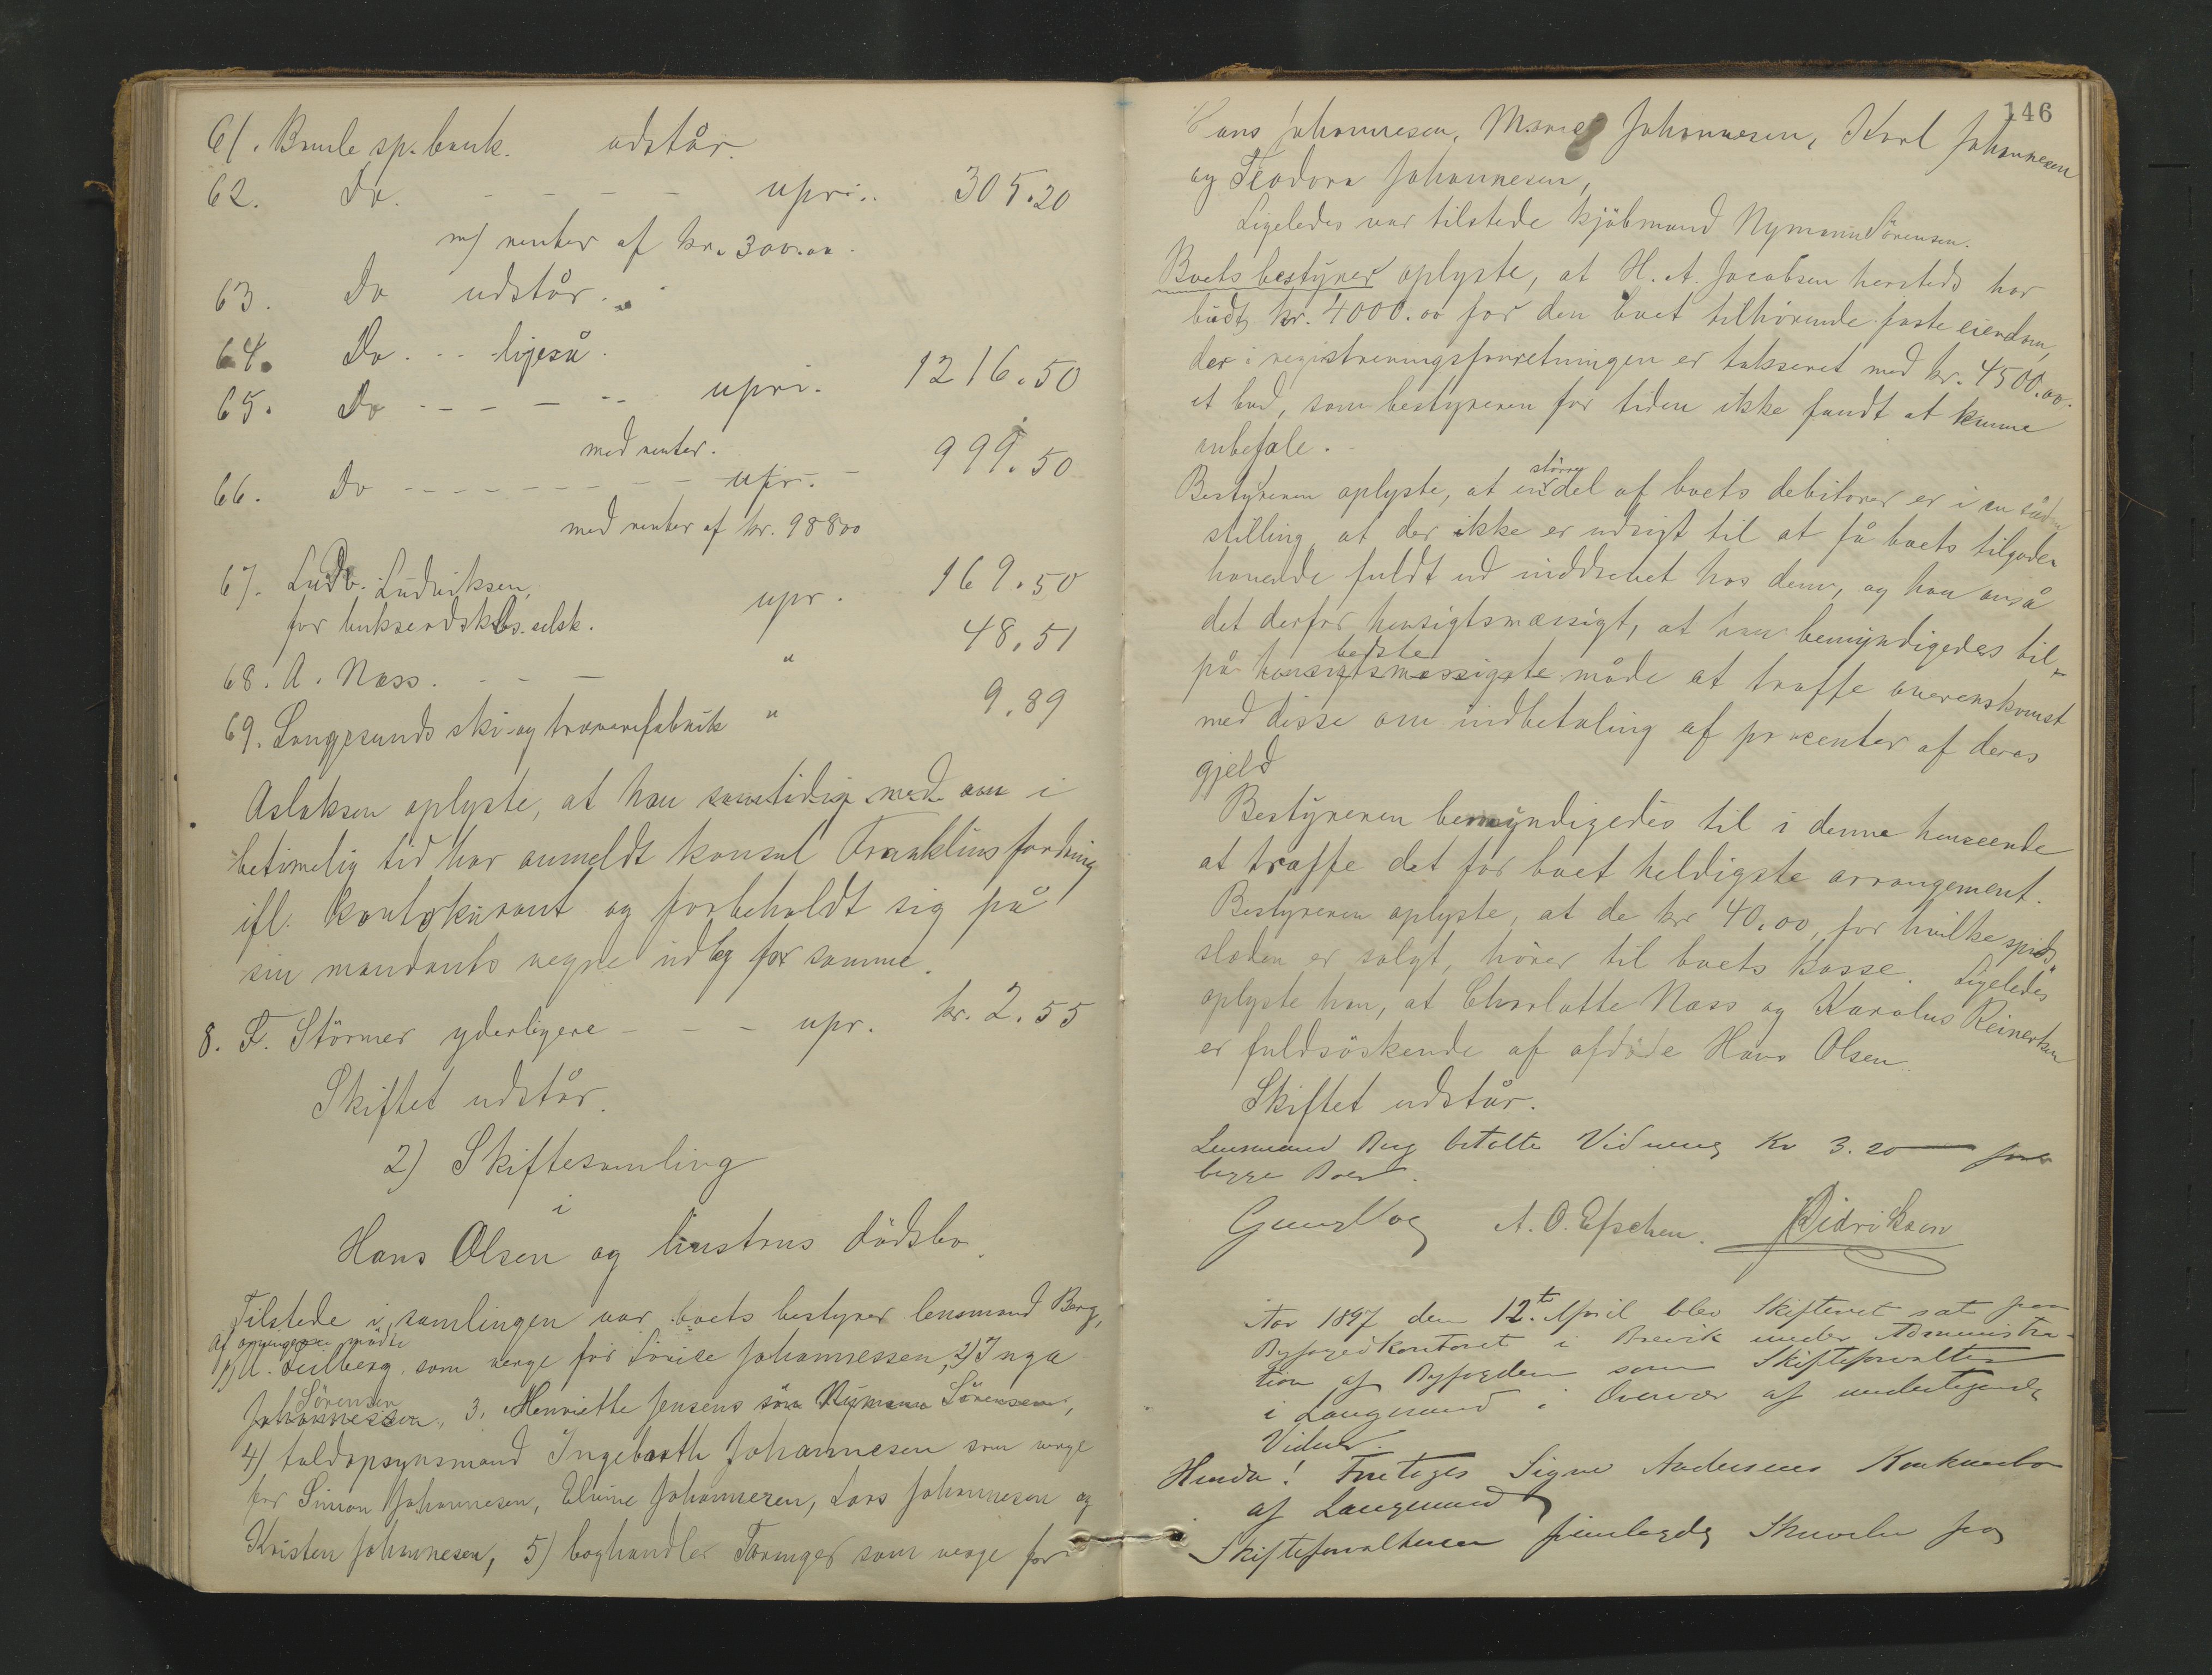 61. Bamle sp.bank. udstår.
62. Do. - - - - upri.. 305.20
m/ renter af kr. 300.00.
63. Do udstår..
64. Do. .. ligeså.
65. Do - - - - .. upri. 1216.50
med renter.
66. Do - - - - - - - - upr. - 999.50
med renter af kr. 98800
67. Ludv. Ludviksen,
for selsk. upr. 169.50
68. A. Næss. - - - " 48.51
69. Langesunds ski- og trævarefabrik " 9.89
Aslaksen oplyste, at han samtidig med an i
betimelig tid har anmeldt konsul Franklins fordring
ifl. kontokurant og forbeholdt sig på
sin mandants vegne udlæg for samme.
8. F. Störmer yderligere - - - upr. kr. 2.55
Skiftet udstår.
2) Skiftesamling
i
Hans Olsen og hustrus dödsbo.
Tilstede i samlingen var boets bestyrer lensmand Berg,
af arvingerne mödte
1) A. som verge for Lovise Johannessen, 2) Inga
Sörensen
Johannessen, 3. Henriette Jensens sön Nymann Sörensen,
4) toldopsynsmand Ingebreth Johannesen som verge
for Simon Johannesen, Elvine Johannesen, Lars Johannesen og
Kristen Johannesen, 5) boghandler som verge for
146
Hans Johannesen, Marie Johannesen, Karl Johannesen
og Teodora Johannesen,
Ligeledes var tilstede kjöbmand Nymann Sörensen.
Boets bestyrer oplyste, at H. A. Jacobsen hersteds har
budt kr. 4000.00 for den boet tilhörende faste eiendom,
der i registreringsforretningen er takseret med kr. 4500.00.
et bud, som bestyreren for tiden ikke fandt at kunne
anbefale.
större
Bestyreren oplyste, at en del af boets debitorer er i en sådan
stilling, at der ikke er udsigt til at få boets tilgode-
havende fuldt ud inddrevet hos dem, og han anså
det derfor hensigtsmæssigt, at han bemyndigedes til
bedste
på hensigtsmæssigste måde at træffe overenskomst
med disse om indbetaling af procenter af deres
gjeld
Bestyreren bemyndigedes til i denne henseende
at træffe det for boet heldigste arrangement.
Bestyreren oplyste, at de kr 40.00, for hvilke spids-
slæden er solgt, hörer til boets kasse. Ligeledes
oplyste han, at Charlotte Næss og Karolus Reinertsen
er fuldsöskende af afdöde Hans Olsen.
Skiftet udstår.
Lensmand Berg betalte Vidneng Kr 3.20 for
begge Boer.
A. O. Didriksen
Aar 1897 den 12te April blev Skifteret sat paa
Byfogedkontoret i Brevik under Administra-
tion af Byfogden som Skifteforvalter
i Langesund i Overvær af undertegnede
Vidner.
Hvorda! Foretoges Signe Andersens Konkursbo
af Langesund
Skifteforvalteren fremlagde Skrivelse fra